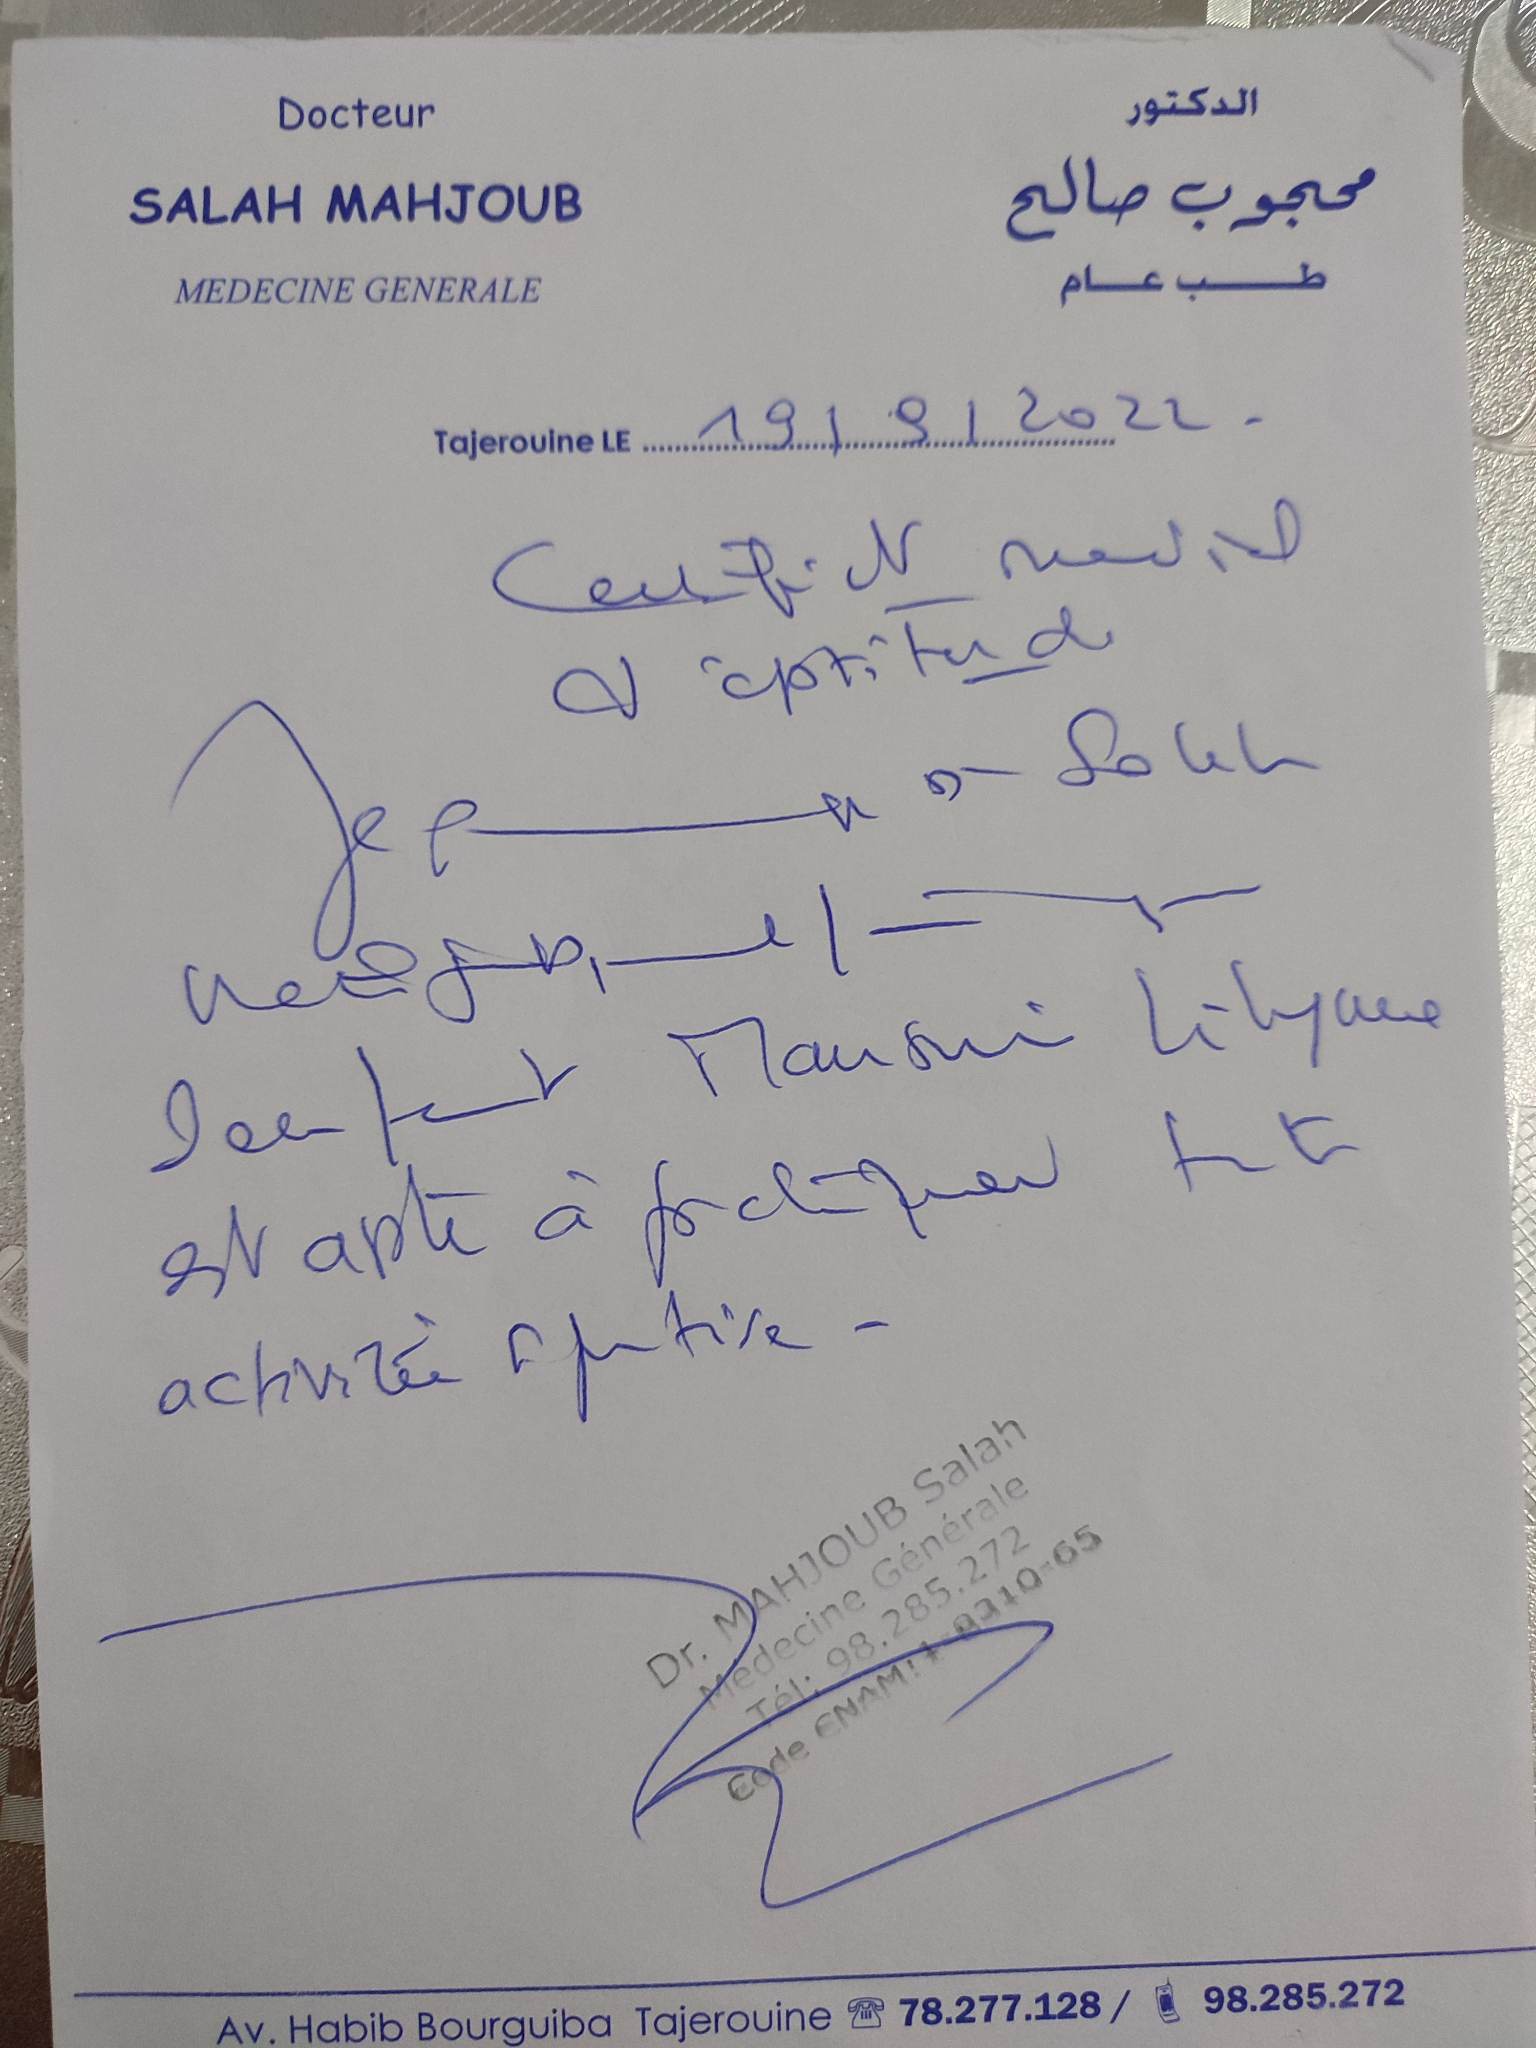 Docteur
SALAH MAHJOUB
MEDECINE GENERALE
الدكتور
محجوب صالح
طب عام
Tajerouine LE 19/9/2022 -
Certificat medical
d'aptitude
Je Dr Salah
Mahjoub,
l'enfant Mansouri
est apte à pratiquer toute
activité sportive -
Dr. MAHJOUB Salah
Médecine Générale
Tél: 98.285.272
Code CNAM:
Av. Habib Bourguiba Tajerouine 78.277.128 / 98.285.272